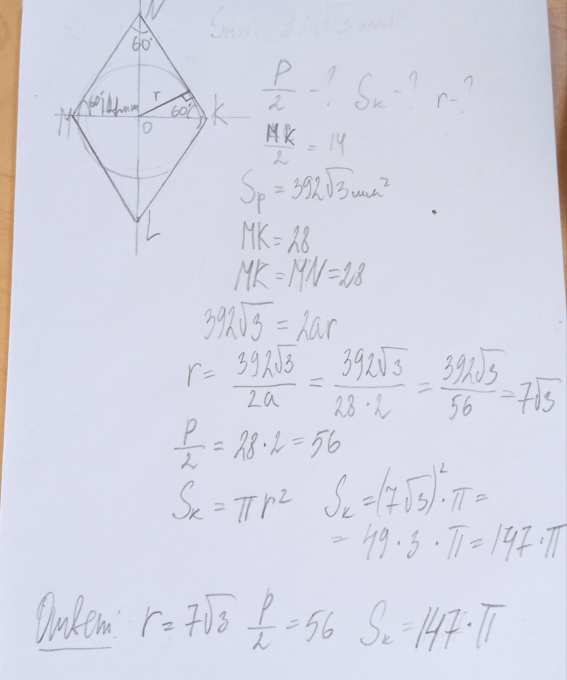 N
60°
r
60° 14
60°
M
O
K
L
P/2 - ? Sк - ? r - ?
MK/2 = 14
Sр = 392√3 мм²
MK = 28
MK = MN = 28
392√3 = 2ar
r = 392√3/2a = 392√3/28·2 = 392√3/56 = 7√3
P/2 = 28·2 = 56
Sк = πr² Sк = (7√3)²·π =
= 49·3·π = 147·π
Ответ: r = 7√3 P/2 = 56 Sк = 147·π